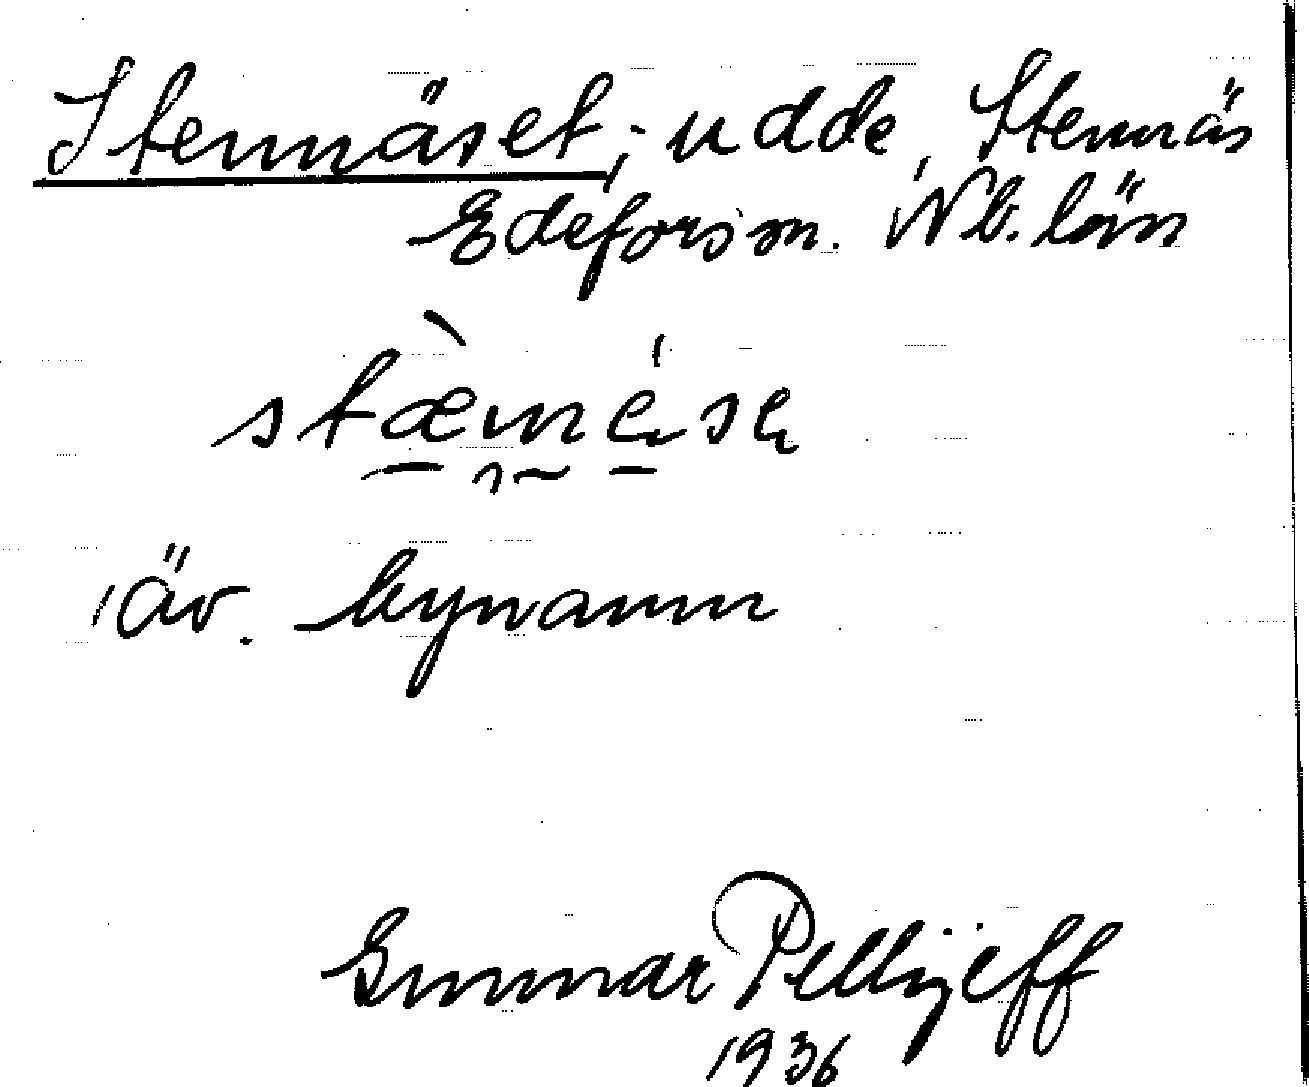 Stennäset; udde, Stennäs
Edefors sn. Nb. län
stæ̀nǽse
äv. bynamn
Gunnar Pellijeff
1936